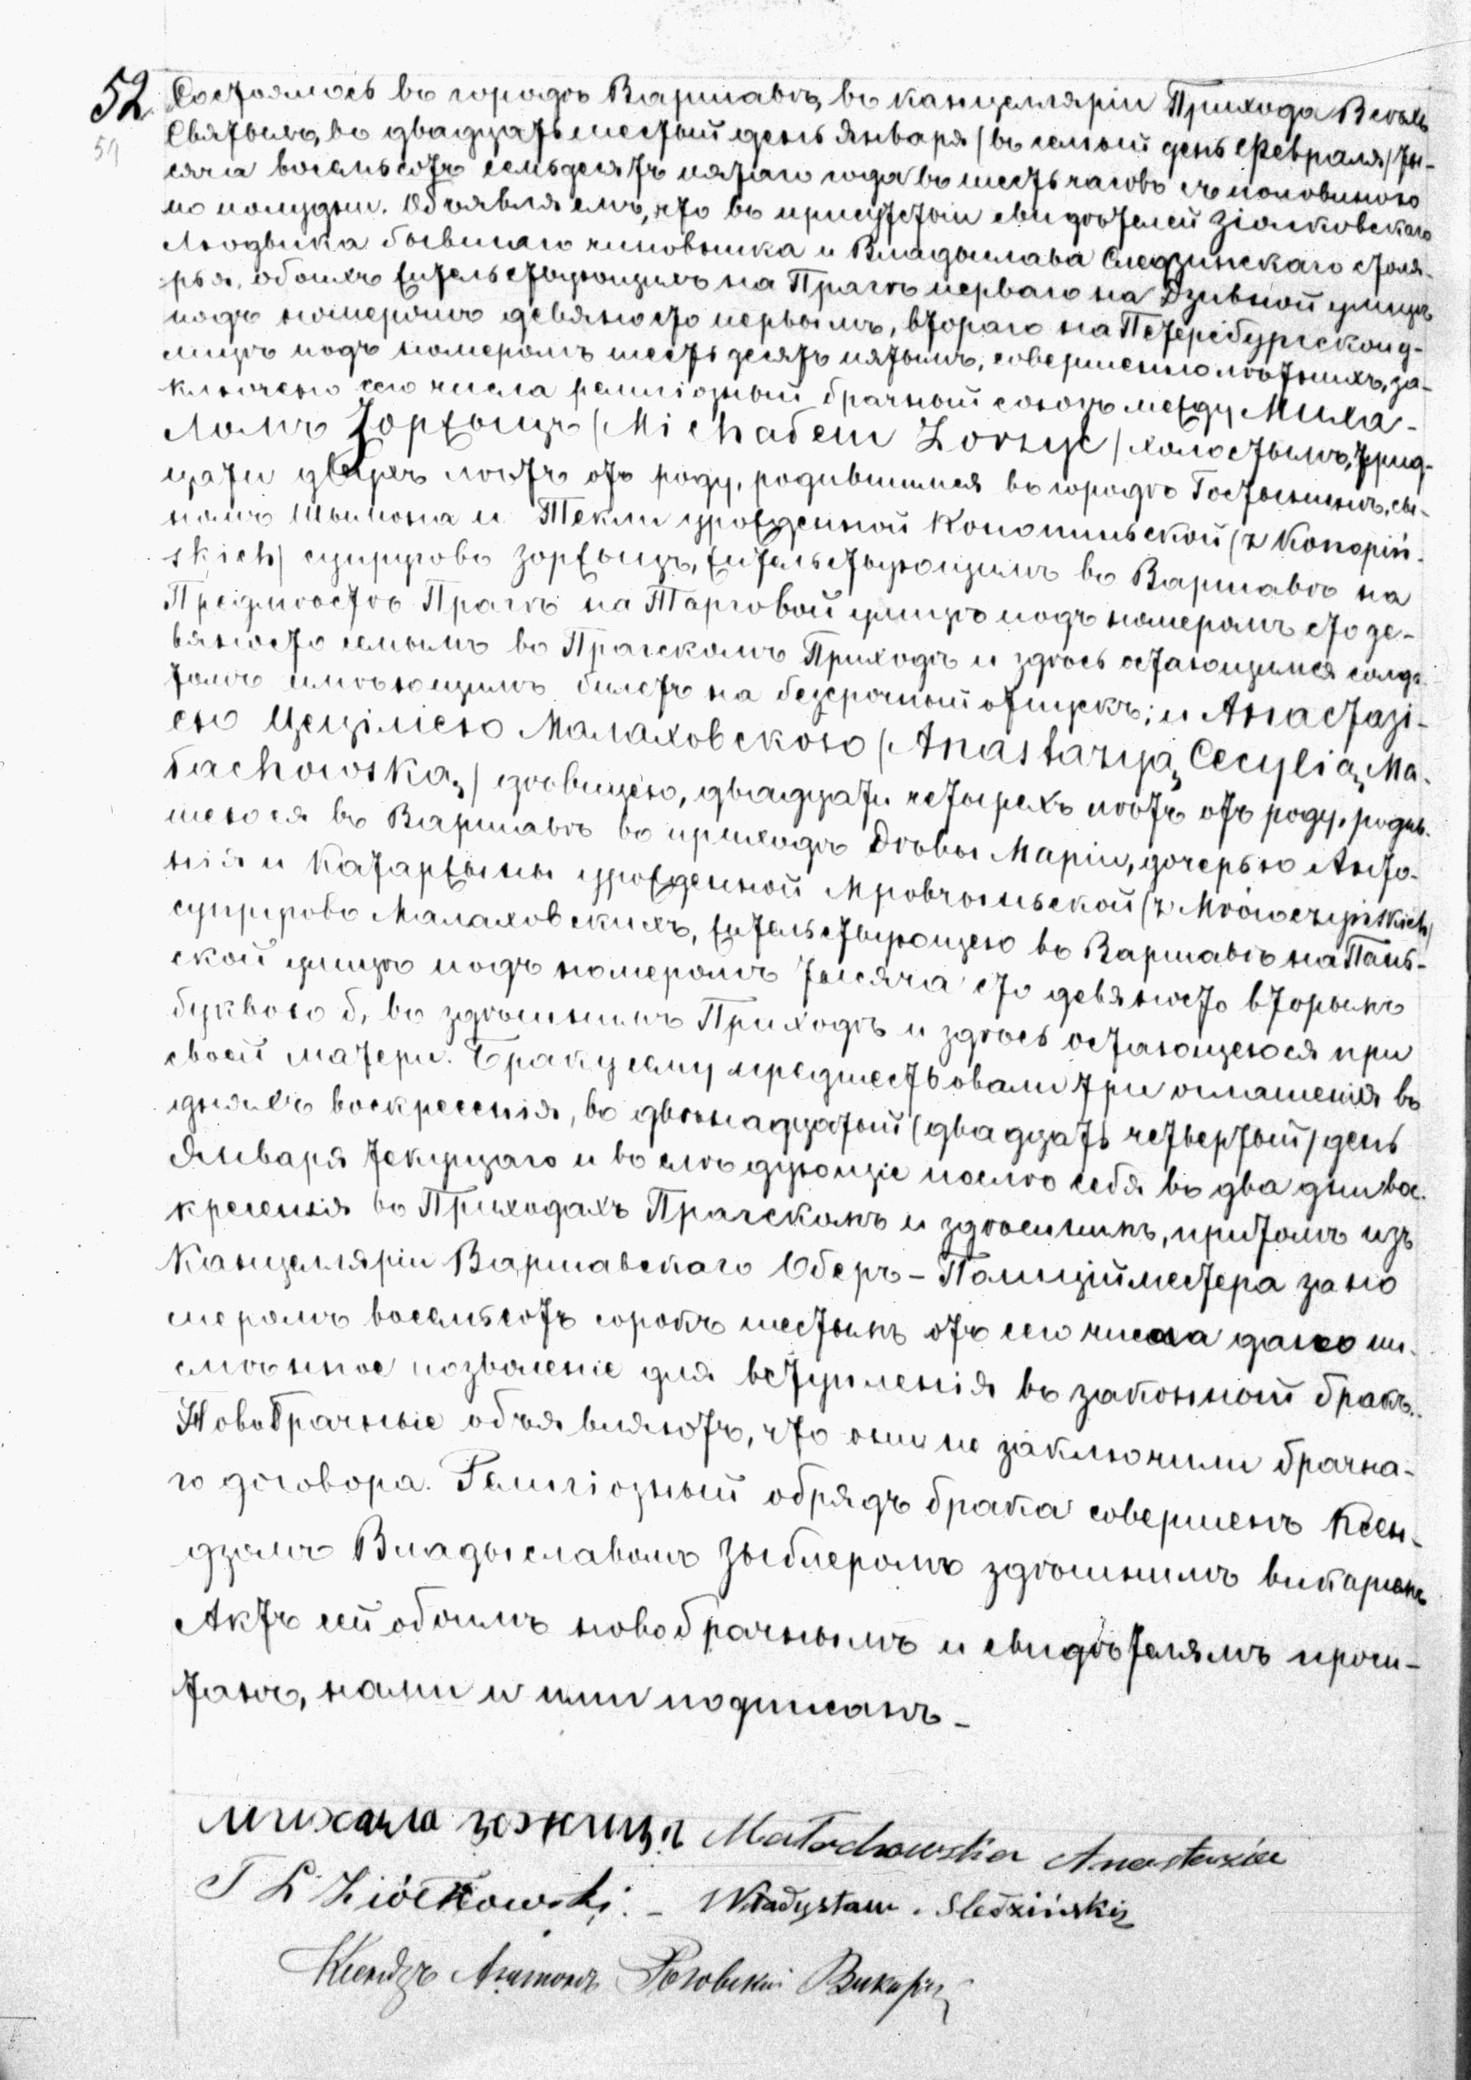 52
Состоялось въ городѣ Варшавѣ, въ канцелляріи Прихода Всѣхъ
Святыхъ, въ двадцать шестый день Января / въ седьмый день Февраля / ты-
сяча восемьсотъ семьдесятъ пятаго года въ шесть часовъ съ половиною
по полудни. Объявляемъ, что въ присутствіи свидѣтелей Зіолковскаго
Людвика бывшаго чиновника и Владыслава Следзинскаго столя-
ря, обоихъ жительствующихъ на Прагѣ перваго на Дзивной улицѣ
подъ номеромъ девяносто первымъ, втораго на Петерсбургской у-
лицѣ подъ номеромъ шестьдесятъ пятымъ, совершеннолѣтнихъ, за-
ключено сего числа религіозный брачный союзъ между Миха-
ломъ Зоржыцъ / Michałem Zorzyc / холостымъ, трид-
цати двухъ лѣтъ отъ роду, родившимся въ городѣ Гостынинѣ, сы-
номъ Шымона и Текли урожденной Конопиньской (z Konopiń-
skich) супруговъ Зоржыцъ, жительствующимъ въ Варшавѣ на
Предмѣстѣ Прагѣ на Тарговой улицѣ подъ номеромъ сто де-
вяносто семымъ въ Пражскомъ Приходѣ и здѣсь остающимся солда-
томъ имѣющимъ билетъ на безсрочный отпускъ; и Анастазі-
ею Цециліею Малаховскою / Anastazyą Cecylią Ma-
łachowską / дѣвицею, двадцати четырехъ лѣтъ отъ роду, родив-
шеюся въ Варшавѣ въ приходѣ Дѣвы Маріи, дочерью Анто-
нія и Катаржыны урожденной Мровчыньской (z Mrówczyńskich)
супруговъ Малаховскихъ, жительствующею въ Варшавѣ на Пань-
ской улицѣ подъ номеромъ тысяча сто девяносто вторымъ
буквою б, въ здѣшнимъ Приходѣ и здѣсь остающеюся при
своей матери. Браку сему предшествовали три оглашенія въ
дняхъ воскресенія, въ двѣнадцатый (двадцать четвертый) день
Января текущаго и въ слѣдующіе послѣ себя въ два дни вос-
кресенія въ Приходахъ Пражскомъ и здѣшнимъ, притомъ изъ
Канцелляріи Варшавскаго Оберъ-Полиціймейстера за но
меромъ восемьсотъ сорокъ шестымъ отъ сего числа дано пи-
смѣнное позволеніе для вступленія въ законный бракъ.
Новобрачные объявляютъ, что они не заключили брачна-
го договора. Религіозный обрядъ брака совершенъ Ксен-
дзомъ Владыславомъ Зыблеромъ здѣшнимъ викаріемъ
Актъ сей обоимъ новобрачнымъ и свидѣтелямъ прочи-
танъ, нами и ими подписанъ.
михалъ зожицъ Małachowska Anastazia
T L Ziółkowski. – Władysław Sledziński
Ксендзъ Антоній Роговскій Викарій